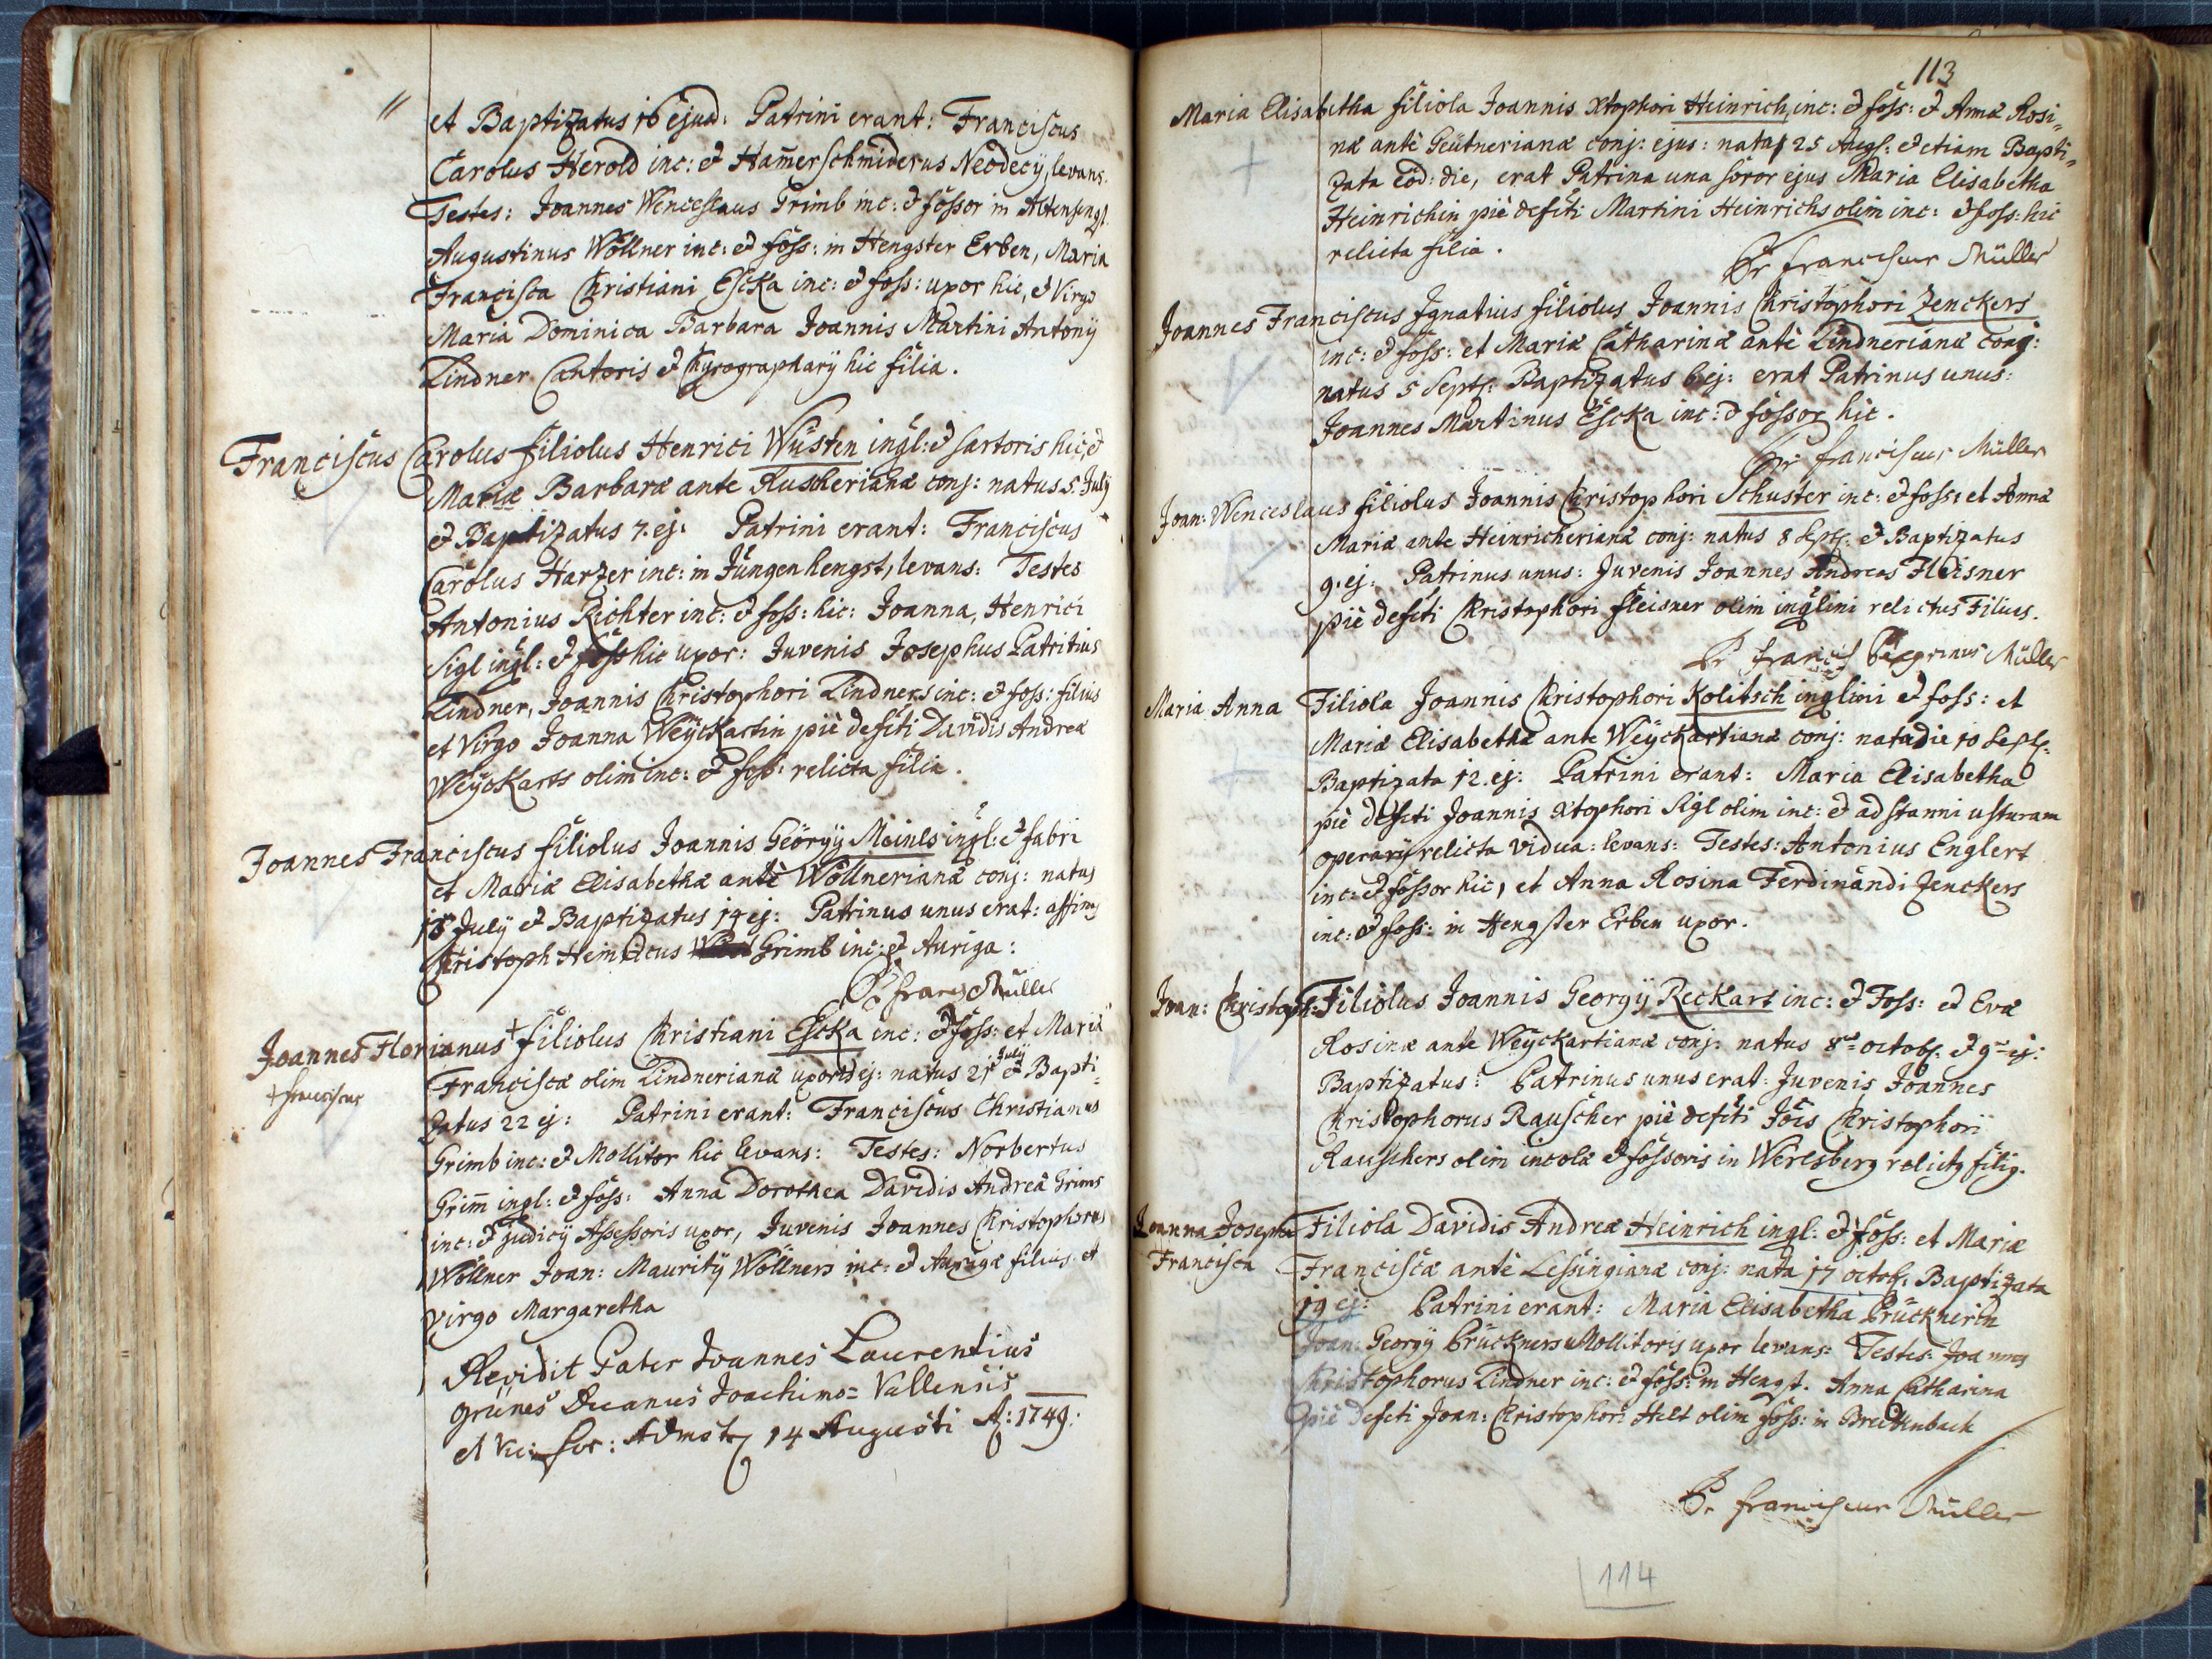 〃 et Baptizatus 16 ejusd: Patrini erant: Franciscus
Carolus Herold inc: et Ham̃erschmiderus Neodecÿ, levans.
Testes: Joannes Wenceslaus Grimb inc: et fossor in Altenhengst.
Augustinus Wöllner inc: et foss: in Hengster Erben, Maria
Francisca Christiani Escka inc: et foss: uxor hic, et Virgo
Maria Dominica Barbara Joannis Martini Antonÿ
Lindner Cantoris et Chyrographarÿ hic filia.
Franciscus Carolus filiolus Henrici Wüsten ingl: et sartoris hic, et
Mariæ Barbaræ ante Ruscherianæ conj: natus 5. Julÿ
et Baptizatus 7. ej: Patrini erant: Franciscus
Carolus Harzer inc: in Jüngenhengst, levans: Testes
Antonius Richter inc: et foss: hic: Joanna, Henrici
Sigl ingl: et foss hic uxor: Juvenis Josephus Patritius
Lindner, Joannis Christophori Lindners inc: et foss: filius
et Virgo Joanna Weÿckartin piè defčti Davidis Andreæ
Weÿckarts olim inc: et foss: relicta filia.
Joannes Franciscus filiolus Joannis Georgÿ Meinls ingl: et fabri
et Mariæ Elisabethæ antè Wöllnerianæ conj: natus
18 Julÿ et Baptizatus 19 ej: Patrinus unus erat: affinis
Christoph Heinricus Grimb inc: et Auriga:
Pr franc Müller
Joannes Florianus + filiolus Christiani Escka inc: et foss: et Mariæ
+ franciscus
Franciscæ olim Lindnerianæ uxoris ej: natus 21 Julÿ et Bapti-
zatus 22 ej: Patrini erant: Franciscus Christianus
Grimb inc: et Mollitor hic levans: Testes: Norbertus
Grim̃ ingl: et foss: Anna Dorothea Davidis Andreæ Grims
inc: et Judicÿ Assessoris uxor, Juvenis Joannes Christophorus
Wöllner Joan: Mauritÿ Wöllners inc: et Aurigæ filius et
virgo Margaretha
Revidit Pater Joannes Laurentius
Grünes Decanus Joachimo=Vallensis
et Vic: for: Admst 14 Augusti A: 1749:
113
Maria Elisabetha filiola Joannis Xtophori Heinrich, inc: et foss: et Annæ Rosi-
næ antè Geütnerianæ conj: ejus: nata 25 Augs: et etiam Bapti-
zata eod: die, erat Patrina una soror ejus Maria Elisabetha
Heinrichin piè defčti Martini Heinrichs olim inc: et foss: hic
relicta filia.
Pr franciscus Müller
Joannes Franciscus Ignatius filiolus Joannis Christophori Zenckers
inc: et foss: et Mariæ Catharinæ antè Lindnerianæ conj:
natus 5 Sept: Baptizatus 6 ej: erat Patrinus unus:
Joannes Martinus Escka inc: et fossor hic.
Pr franciscus Müller
Joan: Wenceslaus filiolus Joannis Christophori Schuster inc: et foss: et Annæ
Mariæ ante Heinricherianæ conj: natus 8 Sept: et Baptizatus
9. ej: Patrinus unus: Juvenis Joannes Andreas Fleisner
piè defčti Christophori fleisner olim inglini relictus Filius.
Pr franc Peregrinus Müller
Maria Anna Filiola Joannis Christophori Kolitsch inglini et foss: et
Mariæ Elisabethæ ante Weÿckartianæ conj: nata die 10 Sept:
Baptizata 12. ej: Patrini erant: Maria Elisabetha
piè defčti Joannis Xtophori Sigl olim inc: et ad stanni usturam
operarÿ relicta vidua: levans: Testes: Antonius Englert
inc: et fossor hic, et Anna Rosina Ferdinandi Zenckers
inc: et foss: in Hengster Erben uxor.
Joan: Christoph: Filiolus Joannis Georgÿ Reckart inc: et Foss: et Evæ
Rosinæ ante Weÿckartianæ conj: natus 8va octob: et 9na ej:
Baptizatus: Patrinus unus erat: Juvenis Joannes
Christophorus Rauscher piè defčti Jois Christophori
Rauschers olim incolæ et fossoris in Werlsberg relictus filius.
Joanna Josepha Filiola Davidis Andreæ Heinrich ingl: et foss: et Mariæ
Francisca Franciscæ antè Lessingianæ conj: nata 17 octob: Baptizata
19 ej: Patrini erant: Maria Elisabetha Prücknerin
Joan: Georgÿ Prückners Mollitoris uxor levans: Testes: Joannes
Christophorus Lindner inc: et foss: in Hengst. Anna Catharina
piè defčti Joan: Christophori Helt olim foss: in Breitenbach
Pr franciscus Müller
114